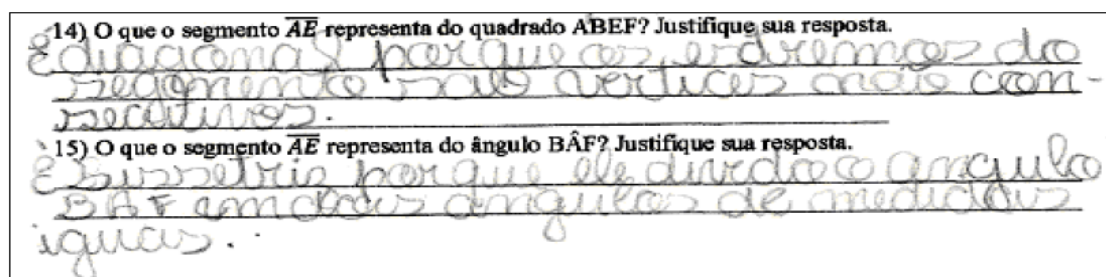 14) O que o segmento AE representa do quadrado ABEF? Justifique sua resposta.
É diagonal porque os extremos do
segmento são vertices não con-
secutivos.
15) O que o segmento AE representa do ângulo BÂF? Justifique sua resposta.
É Bissetris porque ele divide o angulo
BAF em dois angulos de medidas
iguais.